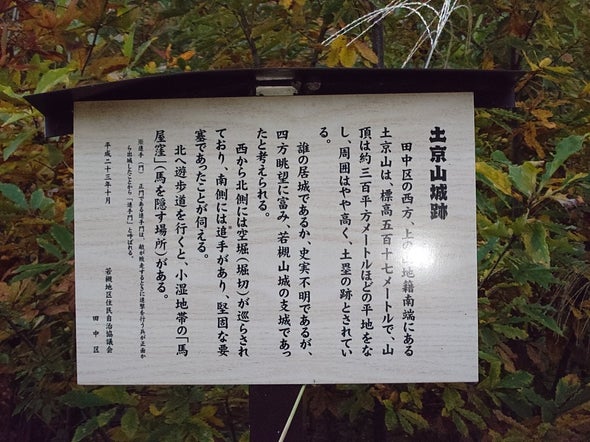 土京山城跡
田中区の西方、上の山地籍南端にある
土京山は、標高五百十七メートルで、山
頂は約三百平方メートルほどの平地をな
し、周囲はやや高く、土塁の跡とされてい
る。
誰の居城であるか、史実不明であるが、
四方眺望に富み、若槻山城の支城であっ
たと考えられる。
西から北側には空堀(堀切)が巡らされ
ており、南側には追手があり、堅固な要
塞であったことが伺える。
北へ遊歩道を行くと、小湿地帯の「馬
屋窪」(馬を隠す場所)がある。
※追手(門) 正門のことで
平成二十三年十月
若槻地区住民自治協議会
田中区